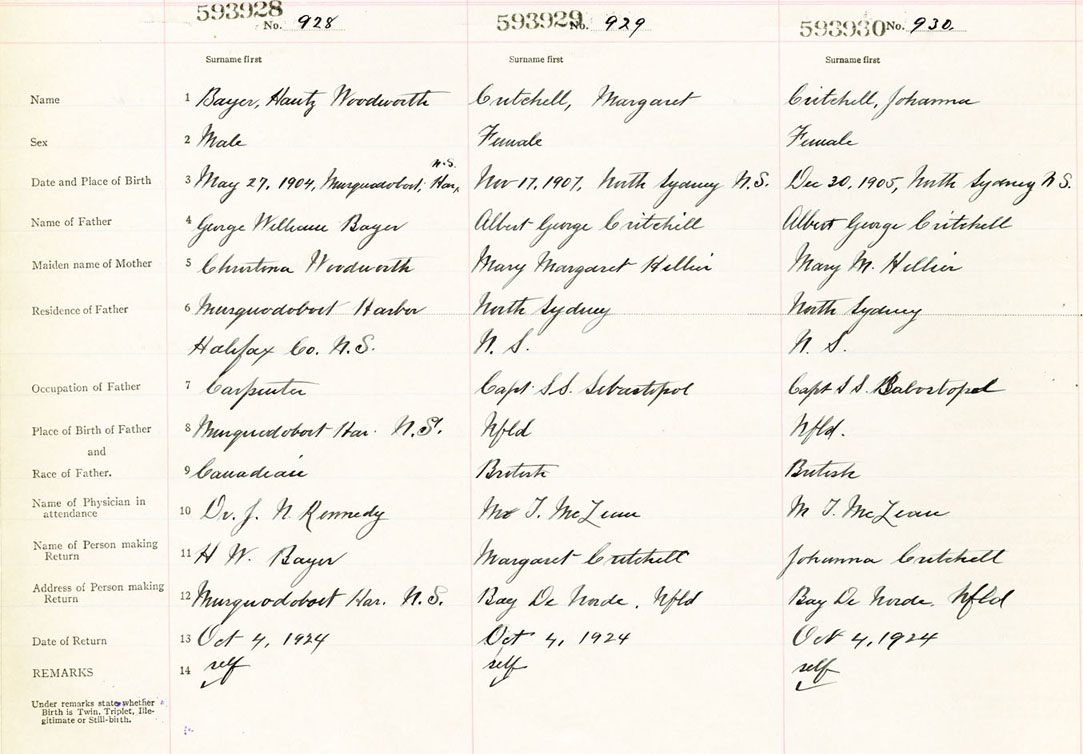 593928 No. 928 593929 No. 929 593930 No. 930.
Surname first Surname first Surname first
Name 1 Bayer, Hantz Woodworth Critchell, Margaret Critchell, Johanna
Sex 2 Male Female Female
N.S.
Date and Place of Birth 3 May 27, 1904, Musquodoboit, Har, Nov 17, 1907, North Sydney N.S. Dec 30, 1905, North Sydney N.S.
Name of Father 4 George William Bayer Albert George Critchell Albert George Critchell
Maiden name of Mother 5 Christena Woodworth Mary Margaret Hellier Mary M. Hellier
Residence of Father 6 Musquodoboit Harbor North Sydney North Sydney
Halifax Co. N.S. N. S. N. S.
Occupation of Father 7 Carpenter Capt. S.S. Sebastopol Capt S S.
Place of Birth of Father 8 Musquodoboit Har. N.S. Nfld Nfld.
and
Race of Father. 9 Canadian British British
Name of Physician in
attendance 10 Dr. J. N. Kennedy T. McLean M T. McLean
Name of Person making
Return 11 H W. Bayer Margaret Critchell Johanna Critchell
Address of Person making
Return 12 Musquodoboit Har. N.S. Bay De Norde, Nfld Bay De Norde, Nfld
Date of Return 13 Oct 4, 1924 Oct 4, 1924 Oct 4, 1924
REMARKS 14 self self self
Under remarks state whether
Birth is Twin, Triplet, Ille-
gitimate or Still-birth.